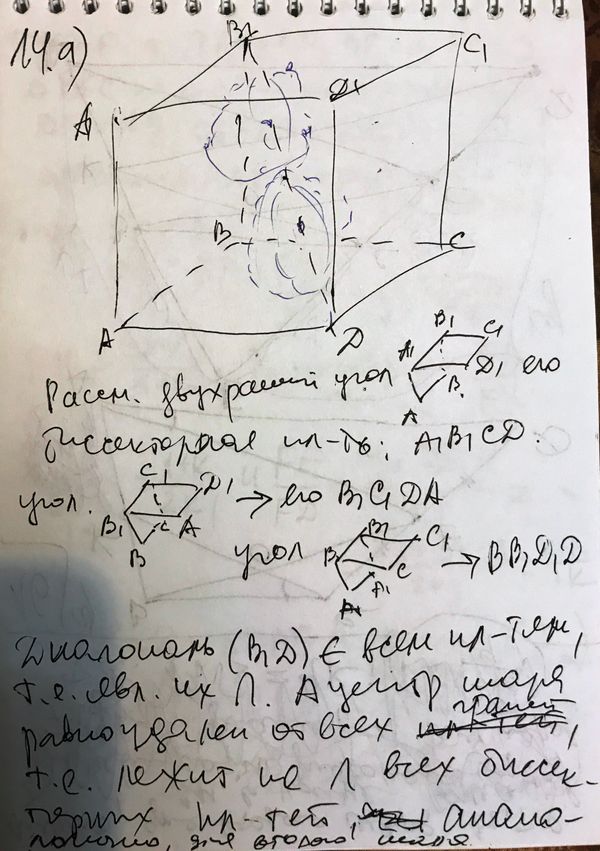 14.а)
B1 C1
A1 D1
B C
A D
Рассм. двухгранный угол A1 B1 C1 D1 B A его
биссекторная пл-ть: A1B1CD.
угол. B1 C1 D1 A B C → его B1C1DA
угол B B1 C1 C A A1 → BB1D1D
Диагональ (B1D) ∈ всем пл-тям,
т.е. явл. их Л. А центр шара
равноудален от всех граней,
т.е. лежит на Л всех биссек-
торных пл-тей, анало-
логично, для второго шара.